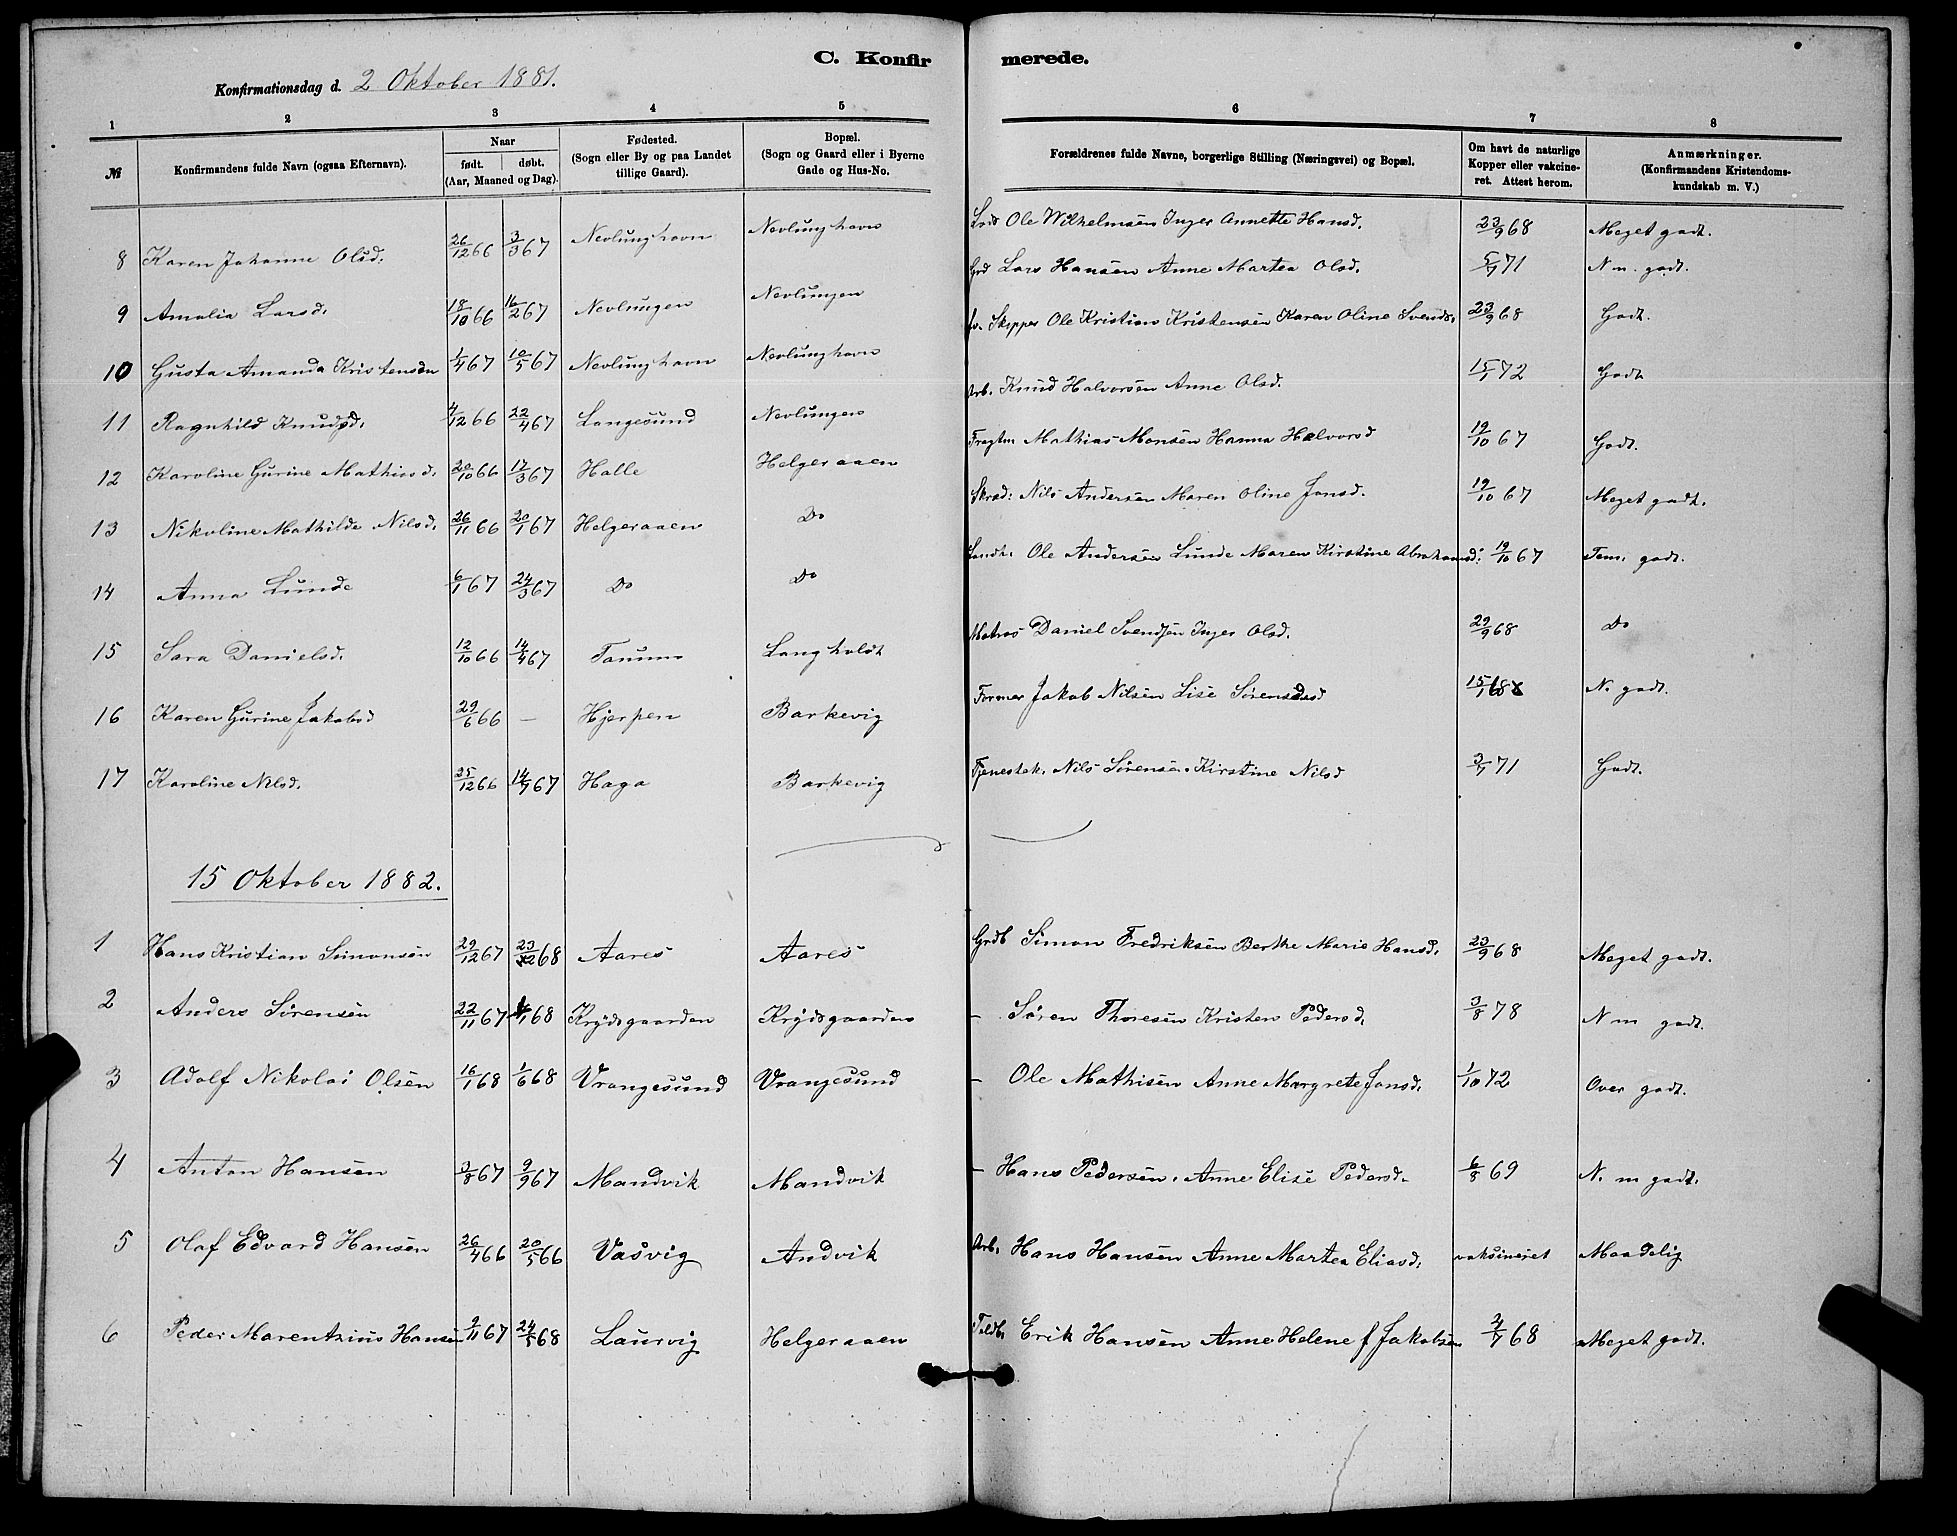 C. Konfirmerede.
Konfirmationsdag d. 2 Oktober 1881.
1 2 3 4 5 6 7 8
№ | Konfirmandens fulde Navn (ogsaa Efternavn). | Naar født. døbt. (Aar, Maaned og Dag). | Fødested. (Sogn eller By og paa Landet tillige Gaard). | Bopæl. (Sogn og Gaard eller i Byerne Gade og Hus-No. | Forældrenes fulde Navne, borgerlige Stilling (Næringsvei) og Bopæl. | Om havt de naturlige Kopper eller vakcineret. Attest herom. | Anmærkninger. (Konfirmandens Kristendomskundskab m. V.)
8 Karen Johanne Olsd. 26/12 66 3/3 67 Nevlunghavn Nevlunghavn Ole Wilhelmsen Inger Annette Hansd. 23/9 68 Meget godt.
9 Amalia Larsd. 18/10 66 16/2 67 Nevlungen Nevlungen Lars Hansen Anne Martea Olsd. 5/7 71 N m. godt.
10 Gusta Amanda Kristensen 1/4 67 10/5 67 Nevlunghavn Nevlunghavn Skipper Ole Kristian Kristensen Karen Oline Svends. 23/9 68 Godt.
11 Ragnhild Knudsd. 4/12 66 22/4 67 Langesund Nevlungen Arb. Knud Halvorsen Anne Olsd. 15/1 72 Godt
12 Karoline Gurine Mathisd. 20/10 66 17/3 67 Halle Helgeraaen Fragtm Mathias Monsen Hanna Halvorsd 19/10 67 Godt.
13 Nikoline Mathilde Nilsd. 26/11 66 20/1 67 Helgeraaen Do Skræd: Nils Andersen Maren Oline Jonsd. 19/10 67 Meget godt.
14 Anna Lunde 6/1 67 24/3 67 Do Do Ole Andersen Lunde Maren Kirstine Abrahamsd: 19/10 67 Tem. godt.
15 Sara Danielsd. 12/10 66 14/4 67 Tanum Langholdt Matros Daniel Svendsen Inger Olsd. 29/9 68 Do
16 Karen Gurine Jakobsd 29/6 66 — Hjerpen Barkevig Former Jakob Nilsen Lise Sørensdsd 15/1 68 N. godt.
17 Karoline Nilsd. 25/12 66 14/7 67 Haga Barkevig Tjenestek. Nils Sørensen. Kirstine Nilsd 3/7 71 Godt.
15 Oktober 1882.
1 Hans Kristian Simonsen 29/12 67 23/2 68 Aares Aares Grdb Simon Fredriksen Berthe Marie Hansd. 23/9 68 Meget godt.
2 Anders Sørensen 22/11 67 1/1 68 Krydsgaarden Krydsgaarden — Søren Thoresen Kristen Pedersd. 3/8 78 N m godt.
3 Adolf Nikolai Olsen 16/1 68 1/6 68 Vrangesund Vrangesund — Ole Mathisen Anne Margrete Jonsd. 1/10 72 Over godt.
4 Anton Hansen 3/8 67 9/9 67 Mandvik Mandvik — Hans Pedersen. Anne Elise Pedersd. 6/8 69 N. m godt.
5 Olaf Edvard Hansen 26/4 66 20/5 66 Vasvig Andvik Arb. Hans Hansen Anne Martea Eliasd. vaksineret Maadelig
6 Peder Marentzius Hansen 9/11 67 24/5 68 Laurvig Helgeraaen Toldb. Erik Hansen Anne Helene f Jakobsen 3/7 68 Meget godt.